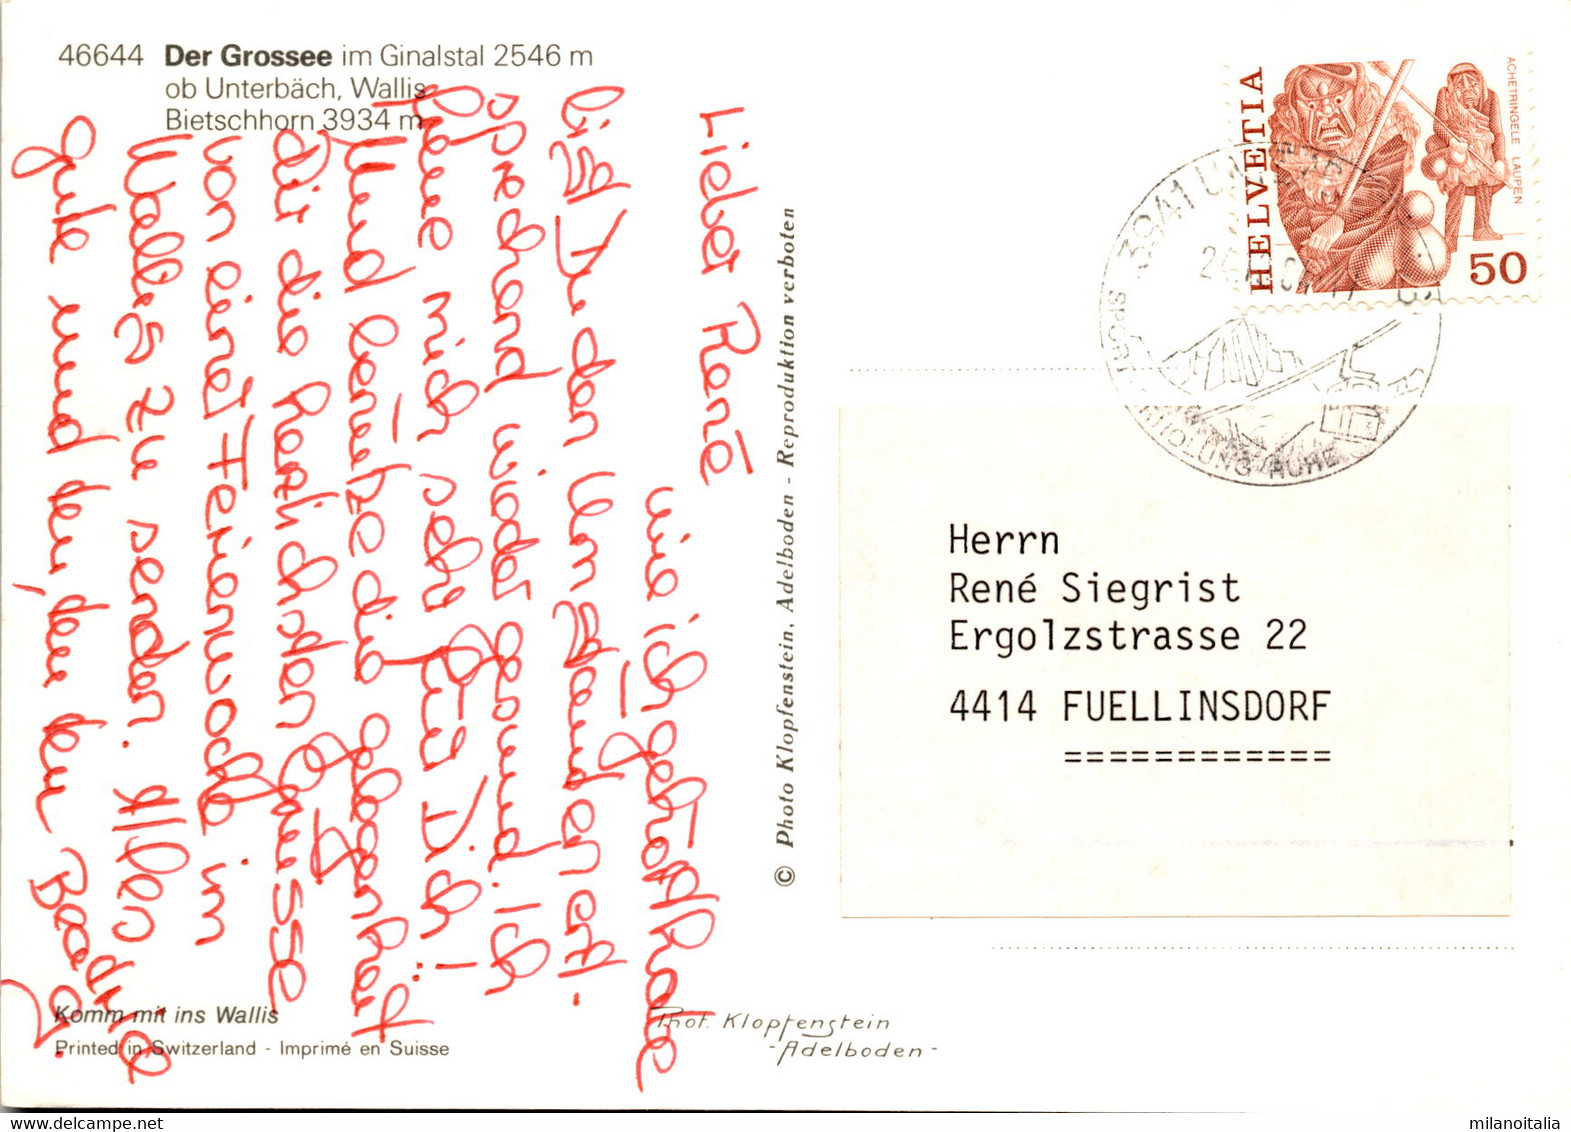 46644 Der Grossee im Ginalstal 2546 m
ob Unterbäch, Wallis
Bietschhorn 3934 m
Lieber René
wie ich gehört habe
bist Du den Umständen ent-
sprechend wieder gesund. Ich
freue mich sehr für Dich!
Und benütze die Gelegenheit
Dir die herzlichsten Grüsse
von einer Ferienwoche im
Wallis zu senden. Alles
gute und
Komm mit ins Wallis
Printed in Switzerland - Imprimé en Suisse
© Photo Klopfenstein, Adelboden - Reproduktion verboten
Phot. Klopfenstein
- Adelboden -
HELVETIA
ACHETRINGELE LAUPEN
50
3941
SPORT
RUHE
Herrn
René Siegrist
Ergolzstrasse 22
4414 FUELLINSDORF
============
milanoitalia